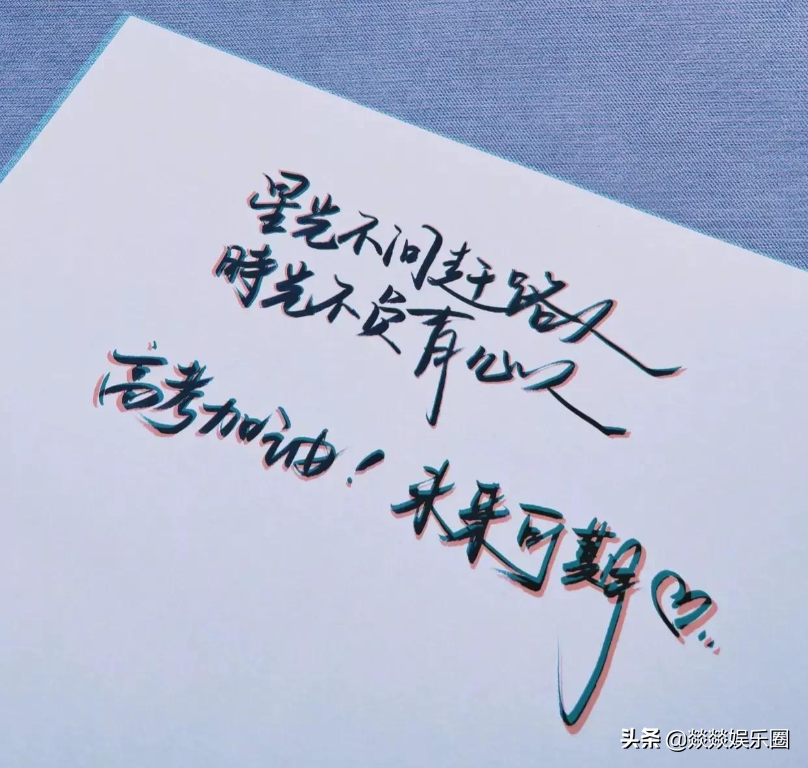 星光不问赶路人
時光不负有心人
高考加油！未来可期
头条 @燚燚娱乐圈